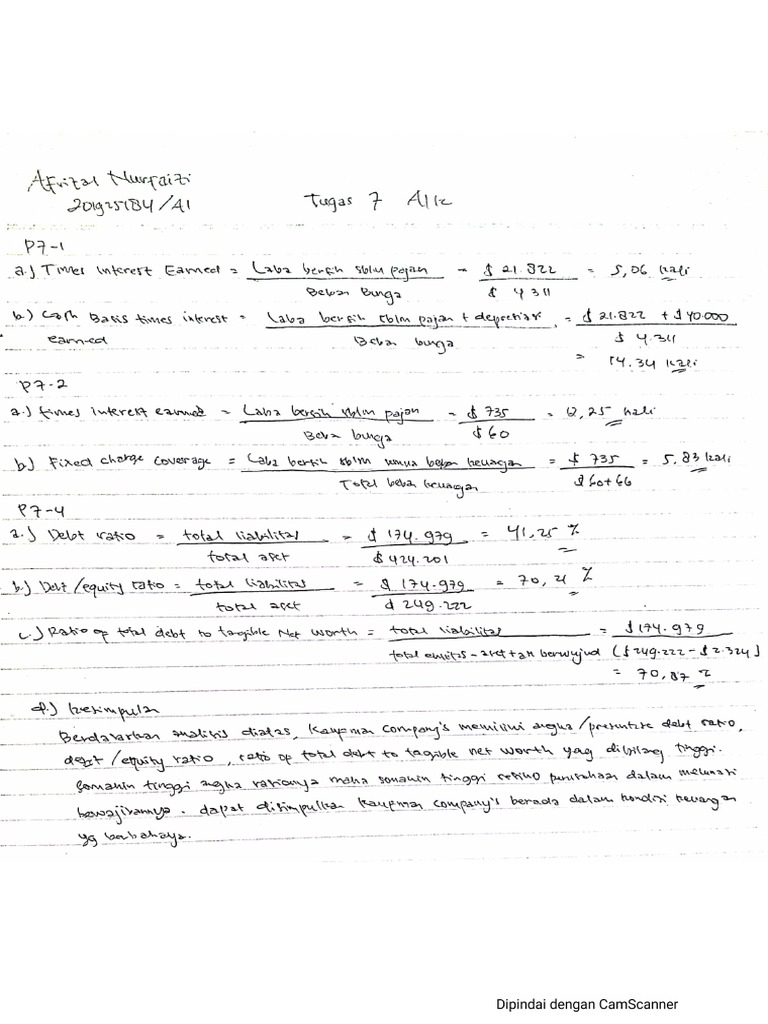 Afrizal Nurfaizi
201925184/A1
Tugas 7 Alk
P7-1
a.) Times Interest Earned = Laba bersih sblm pajak / Beban Bunga = $ 21.822 / $ 4311 = 5,06 kali
b.) Cash Basis times interest earned = Laba bersih sblm pajak + depresiasi / Beban bunga = $ 21.822 + $ 40.000 / $ 4.311
= 14.34 kali
P7-2
a.) times interest earned = Laba bersih sblm pajak / Beban bunga = $ 735 / $ 60 = 12,25 kali
b.) Fixed charge coverage = Laba bersih sblm semua beban keuangan / Total beban keuangan = $ 735 / $ 60+66 = 5,83 kali
P7-4
a.) Debt ratio = total liabilitas / total aset = $ 174.979 / $ 424.201 = 41,25 %
b.) Debt /equity ratio = total liabilitas / total aset = $ 174.979 / $ 249.222 = 70,21 %
c.) Ratio of total debt to tagible Net worth = total liabilitas / total ekuitas - aset tak berwujud = $ 174.979 / ($ 249.222 - $ 2.324)
= 70,87 %
d.) kesimpulan
Berdasarkan analisis diatas, Kaufman company's memiliki angka/presentase debt ratio,
debt/equity ratio, ratio of total debt to tagible net worth yag dibilang tinggi.
Semakin tinggi angka rationya maka semakin tinggi resiko perusahaan dalam melunasi
kewajibannya. dapat disimpulkan Kaufman company's berada dalam kondisi keuangan
yg berbahaya.
Dipindai dengan CamScanner